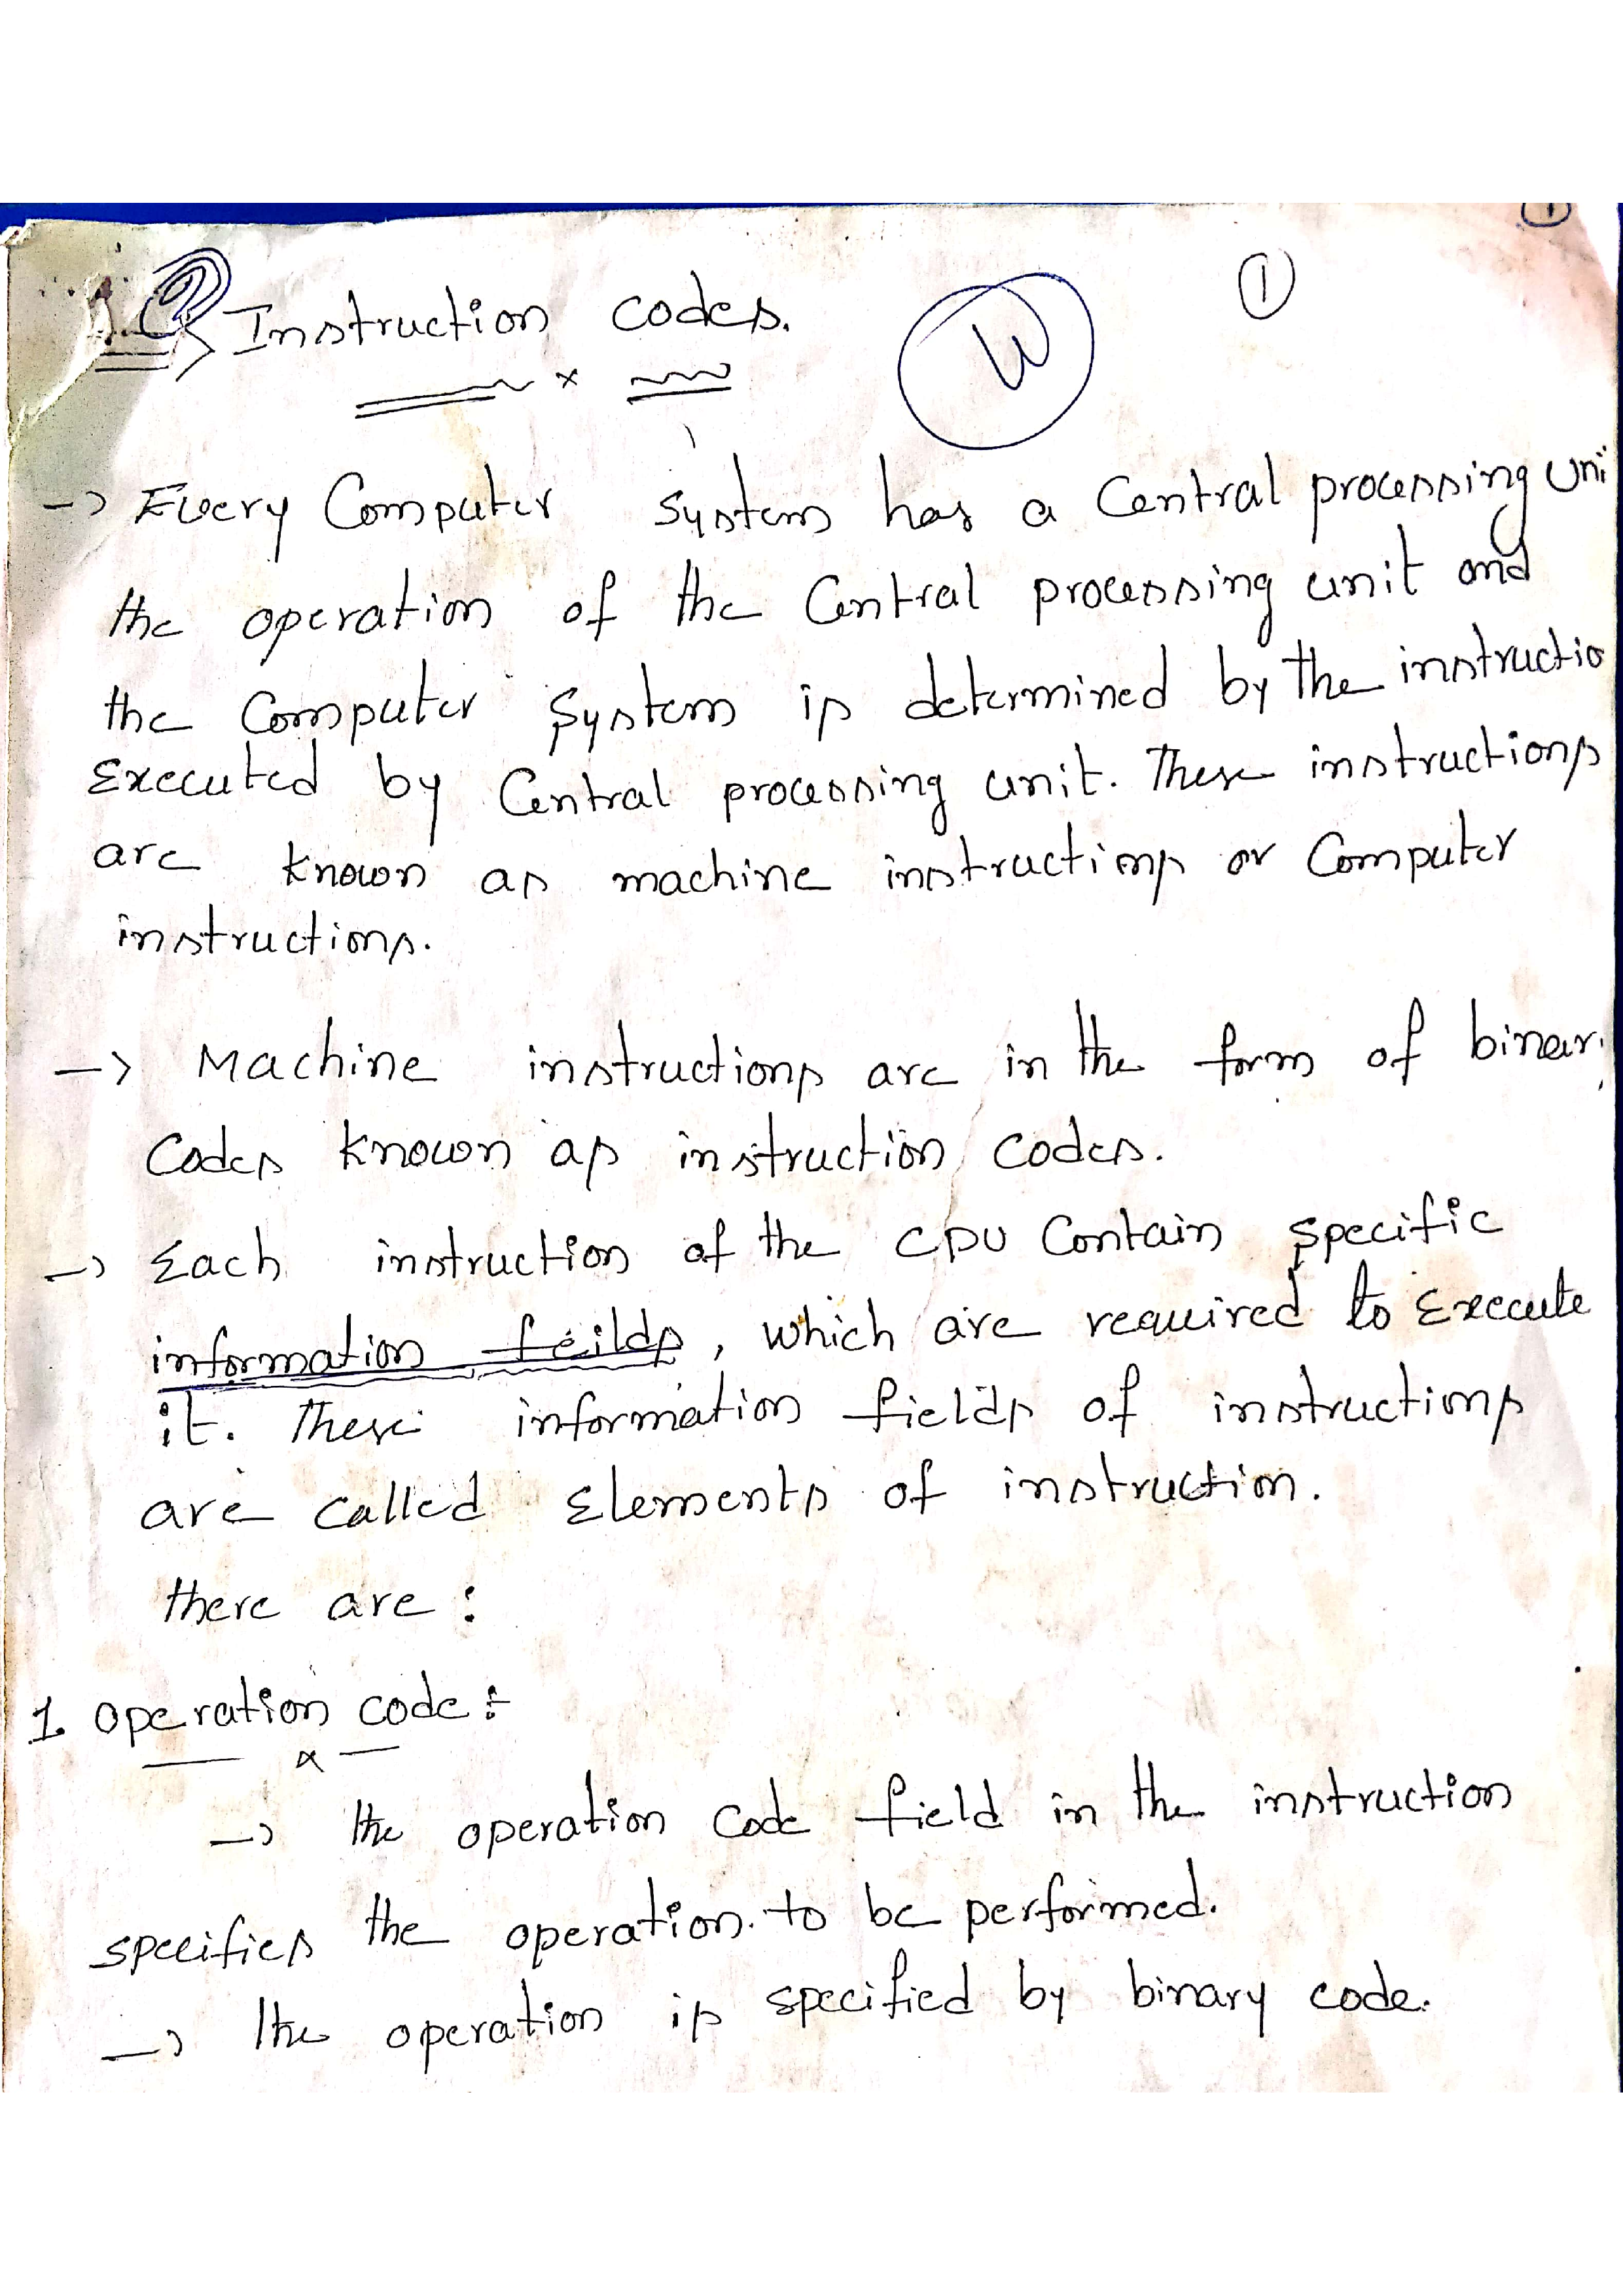 ①
Instruction codes.
W
-> Every Computer system has a Central processing uni
the operation of the Central processing unit and
the Computer System is determined by the instructio
Executed by Central processing unit. These instructions
are known as machine instructions or Computer
instructions.
-> Machine instructions are in the form of binar
Codes known as instruction codes.
-> Each instruction of the CPU Contain specific
information feilds, which are required to Execute
it. These information fields of instructions
are called Elements of instruction.
there are :
1. Operation code :-
-> the operation code field in the instruction
specifies the operation to be performed.
-> the operation is specified by binary code.